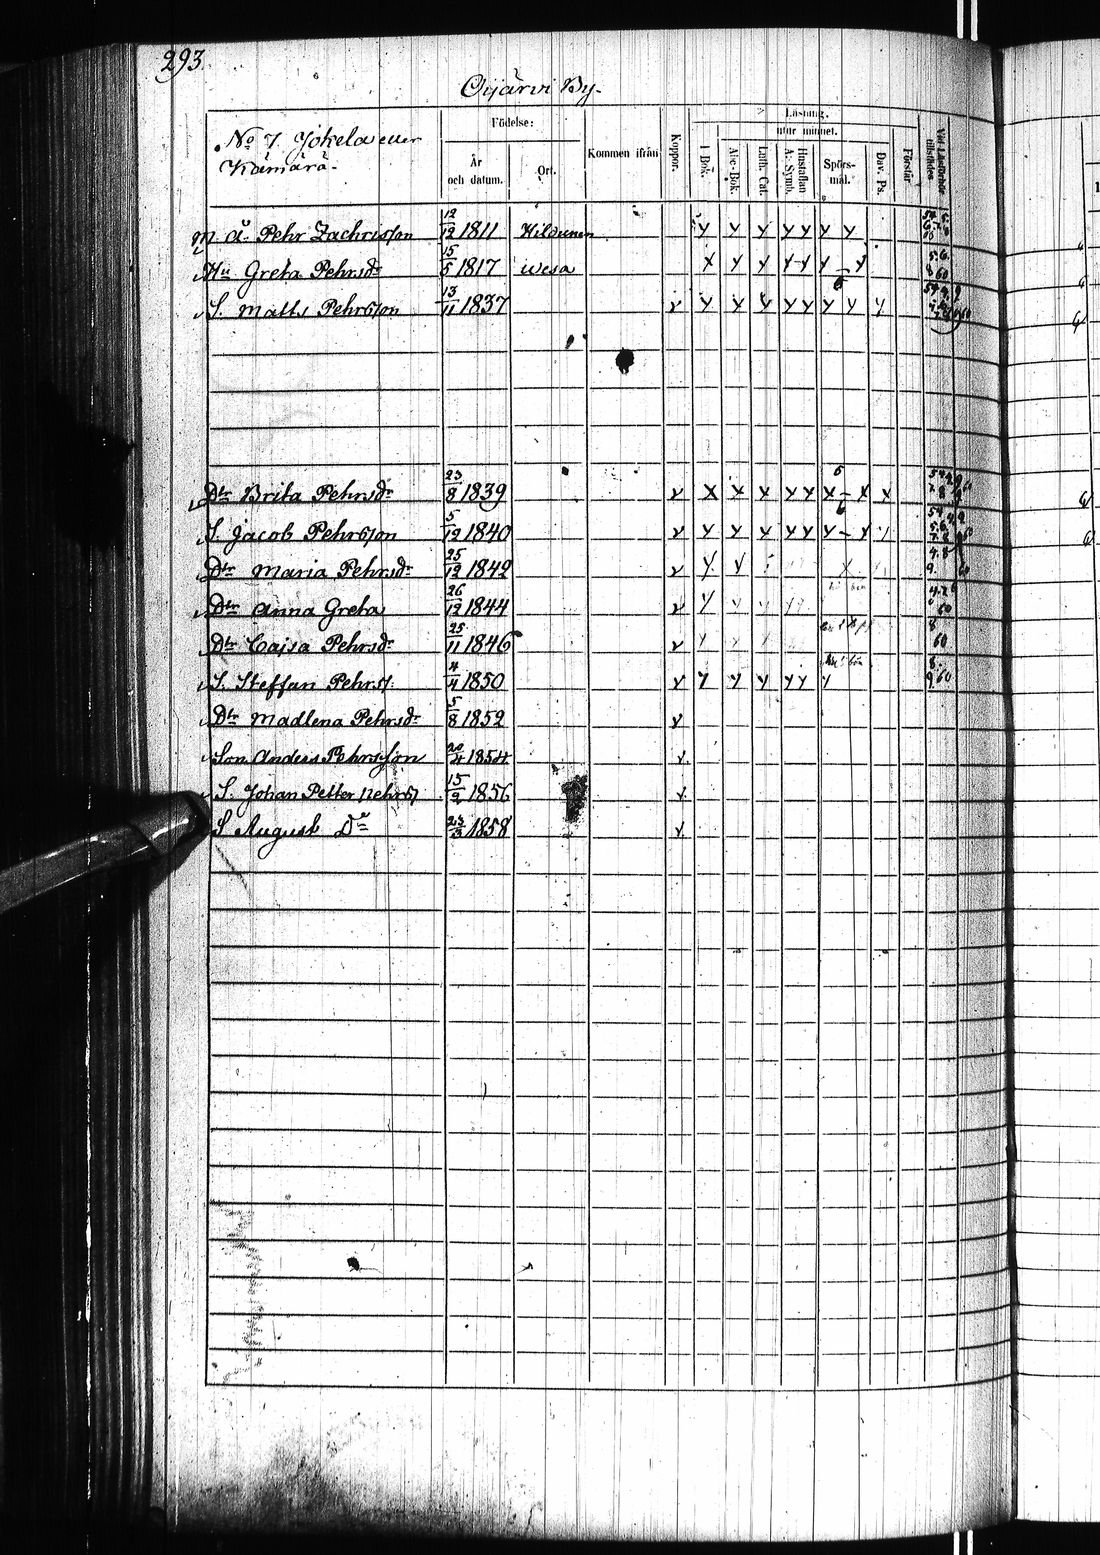 293.
Oijärvi By.
No 7. Jokela eller
Kämärä.
Födelse:
År
och datum.
Ort.
Kommen ifrån
Koppor.
Läsning.
utur minnet.
I Bok.
Abc-Bok.
Luth. Cat.
Hustaflan
A. Symb.
Spörs-
mål.
Dav. Ps.
Förstår
Vid Läsförhör
tillstädes
Å. Pehr Zachrisson 12/12 1811 Kildunen
Hu Greta Pehrsdr 15/5 1817 Wesa
S. Matts Pehrsson 13/11 1837
Dtr Brita Pehrsdr 23/8 1839
S. Jacob Pehrsson 5/12 1840
Dtr Maria Pehrsdr 25/12 1842
Dtr Anna Greta 26/12 1844
Dtr Cajsa Pehrsdr 25/11 1846
S. Steffan Pehrss. 4/4 1850
Dtr Madlena Pehrsdr 5/8 1852
Son Anders Pehrsson 20/4 1854
S. Johan Petter Pehrss 15/2 1856
S August Do 23/3 1858